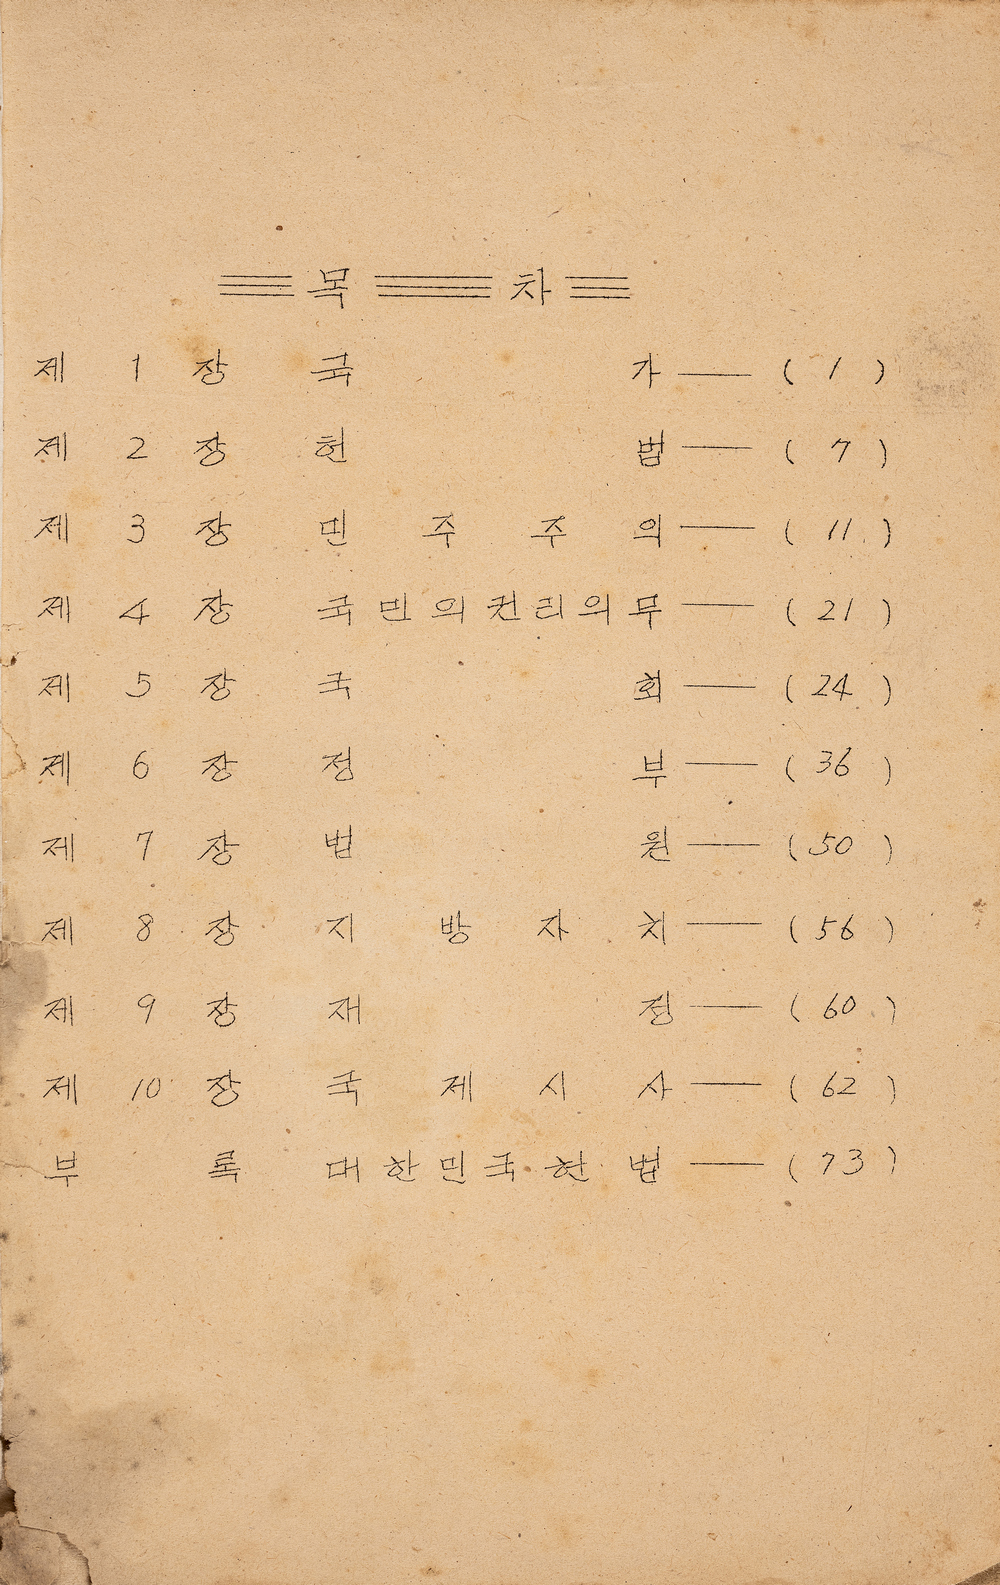 목 차
제 1 장 국 가 —— ( 1 )
제 2 장 헌 법 —— ( 7 )
제 3 장 민 주 주 의 —— ( 11 )
제 4 장 국민의권리의무 —— ( 21 )
제 5 장 국 회 —— ( 24 )
제 6 장 정 부 —— ( 36 )
제 7 장 법 원 —— ( 50 )
제 8 장 지 방 자 치 —— ( 56 )
제 9 장 재 정 —— ( 60 )
제 10 장 국 제 시 사 —— ( 62 )
부 록 대한민국헌법 —— ( 73 )